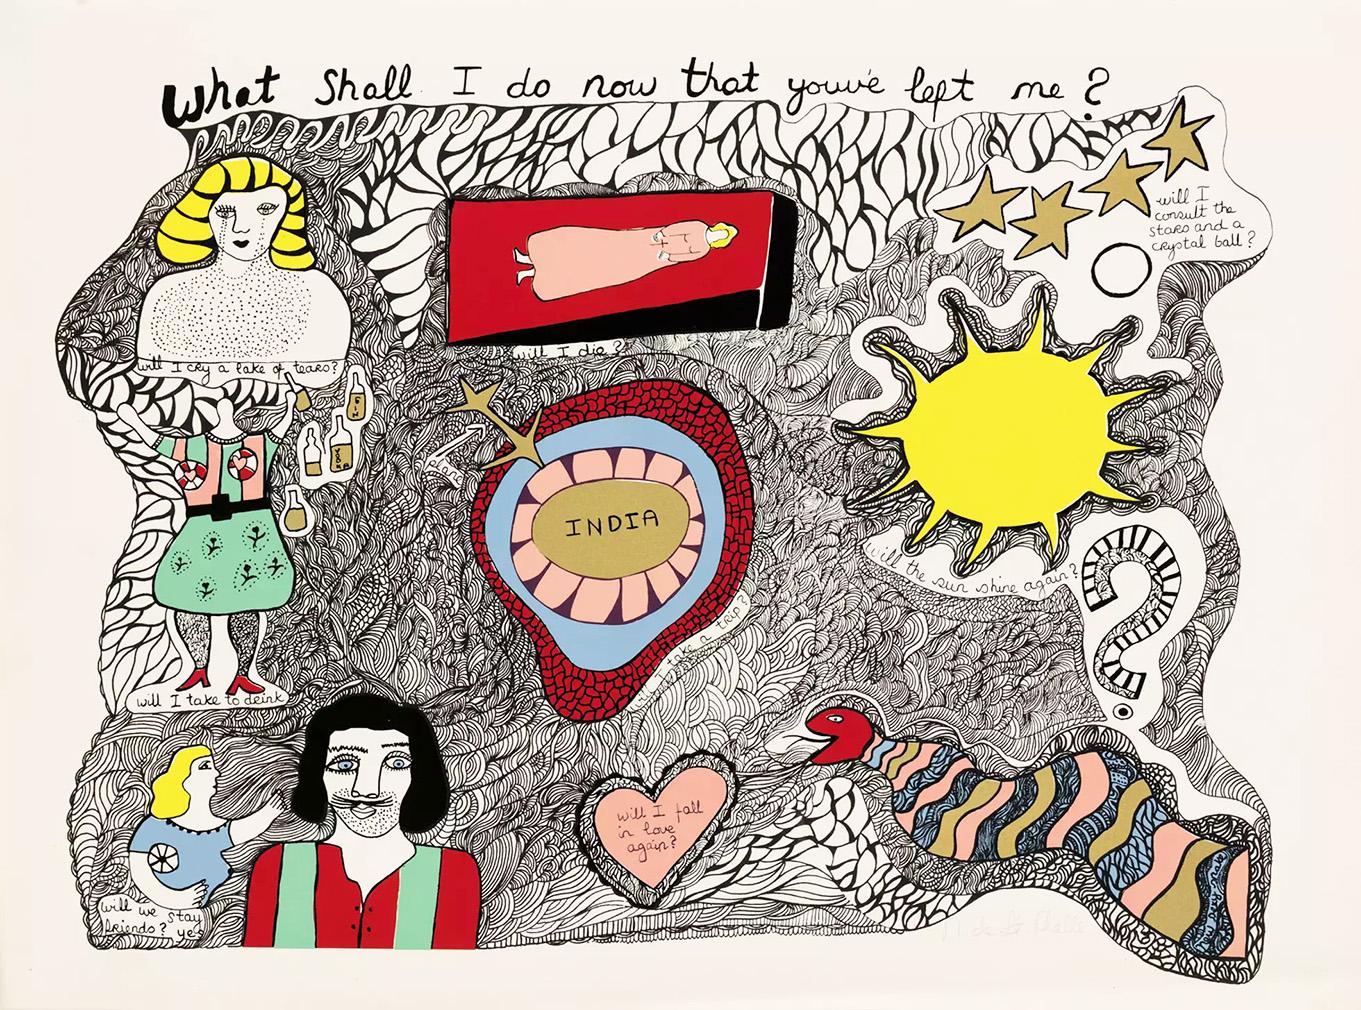 What Shall I do now that youv'e left me?
will I
consult the
stars and a
crystal ball?
will I die?
will I cry a lake of tears?
GIN
VODKA
INDIA
will the sun shine again?
take a trip?
will I take to drink
will I fall
in love
again?
will we stay
friends? yes